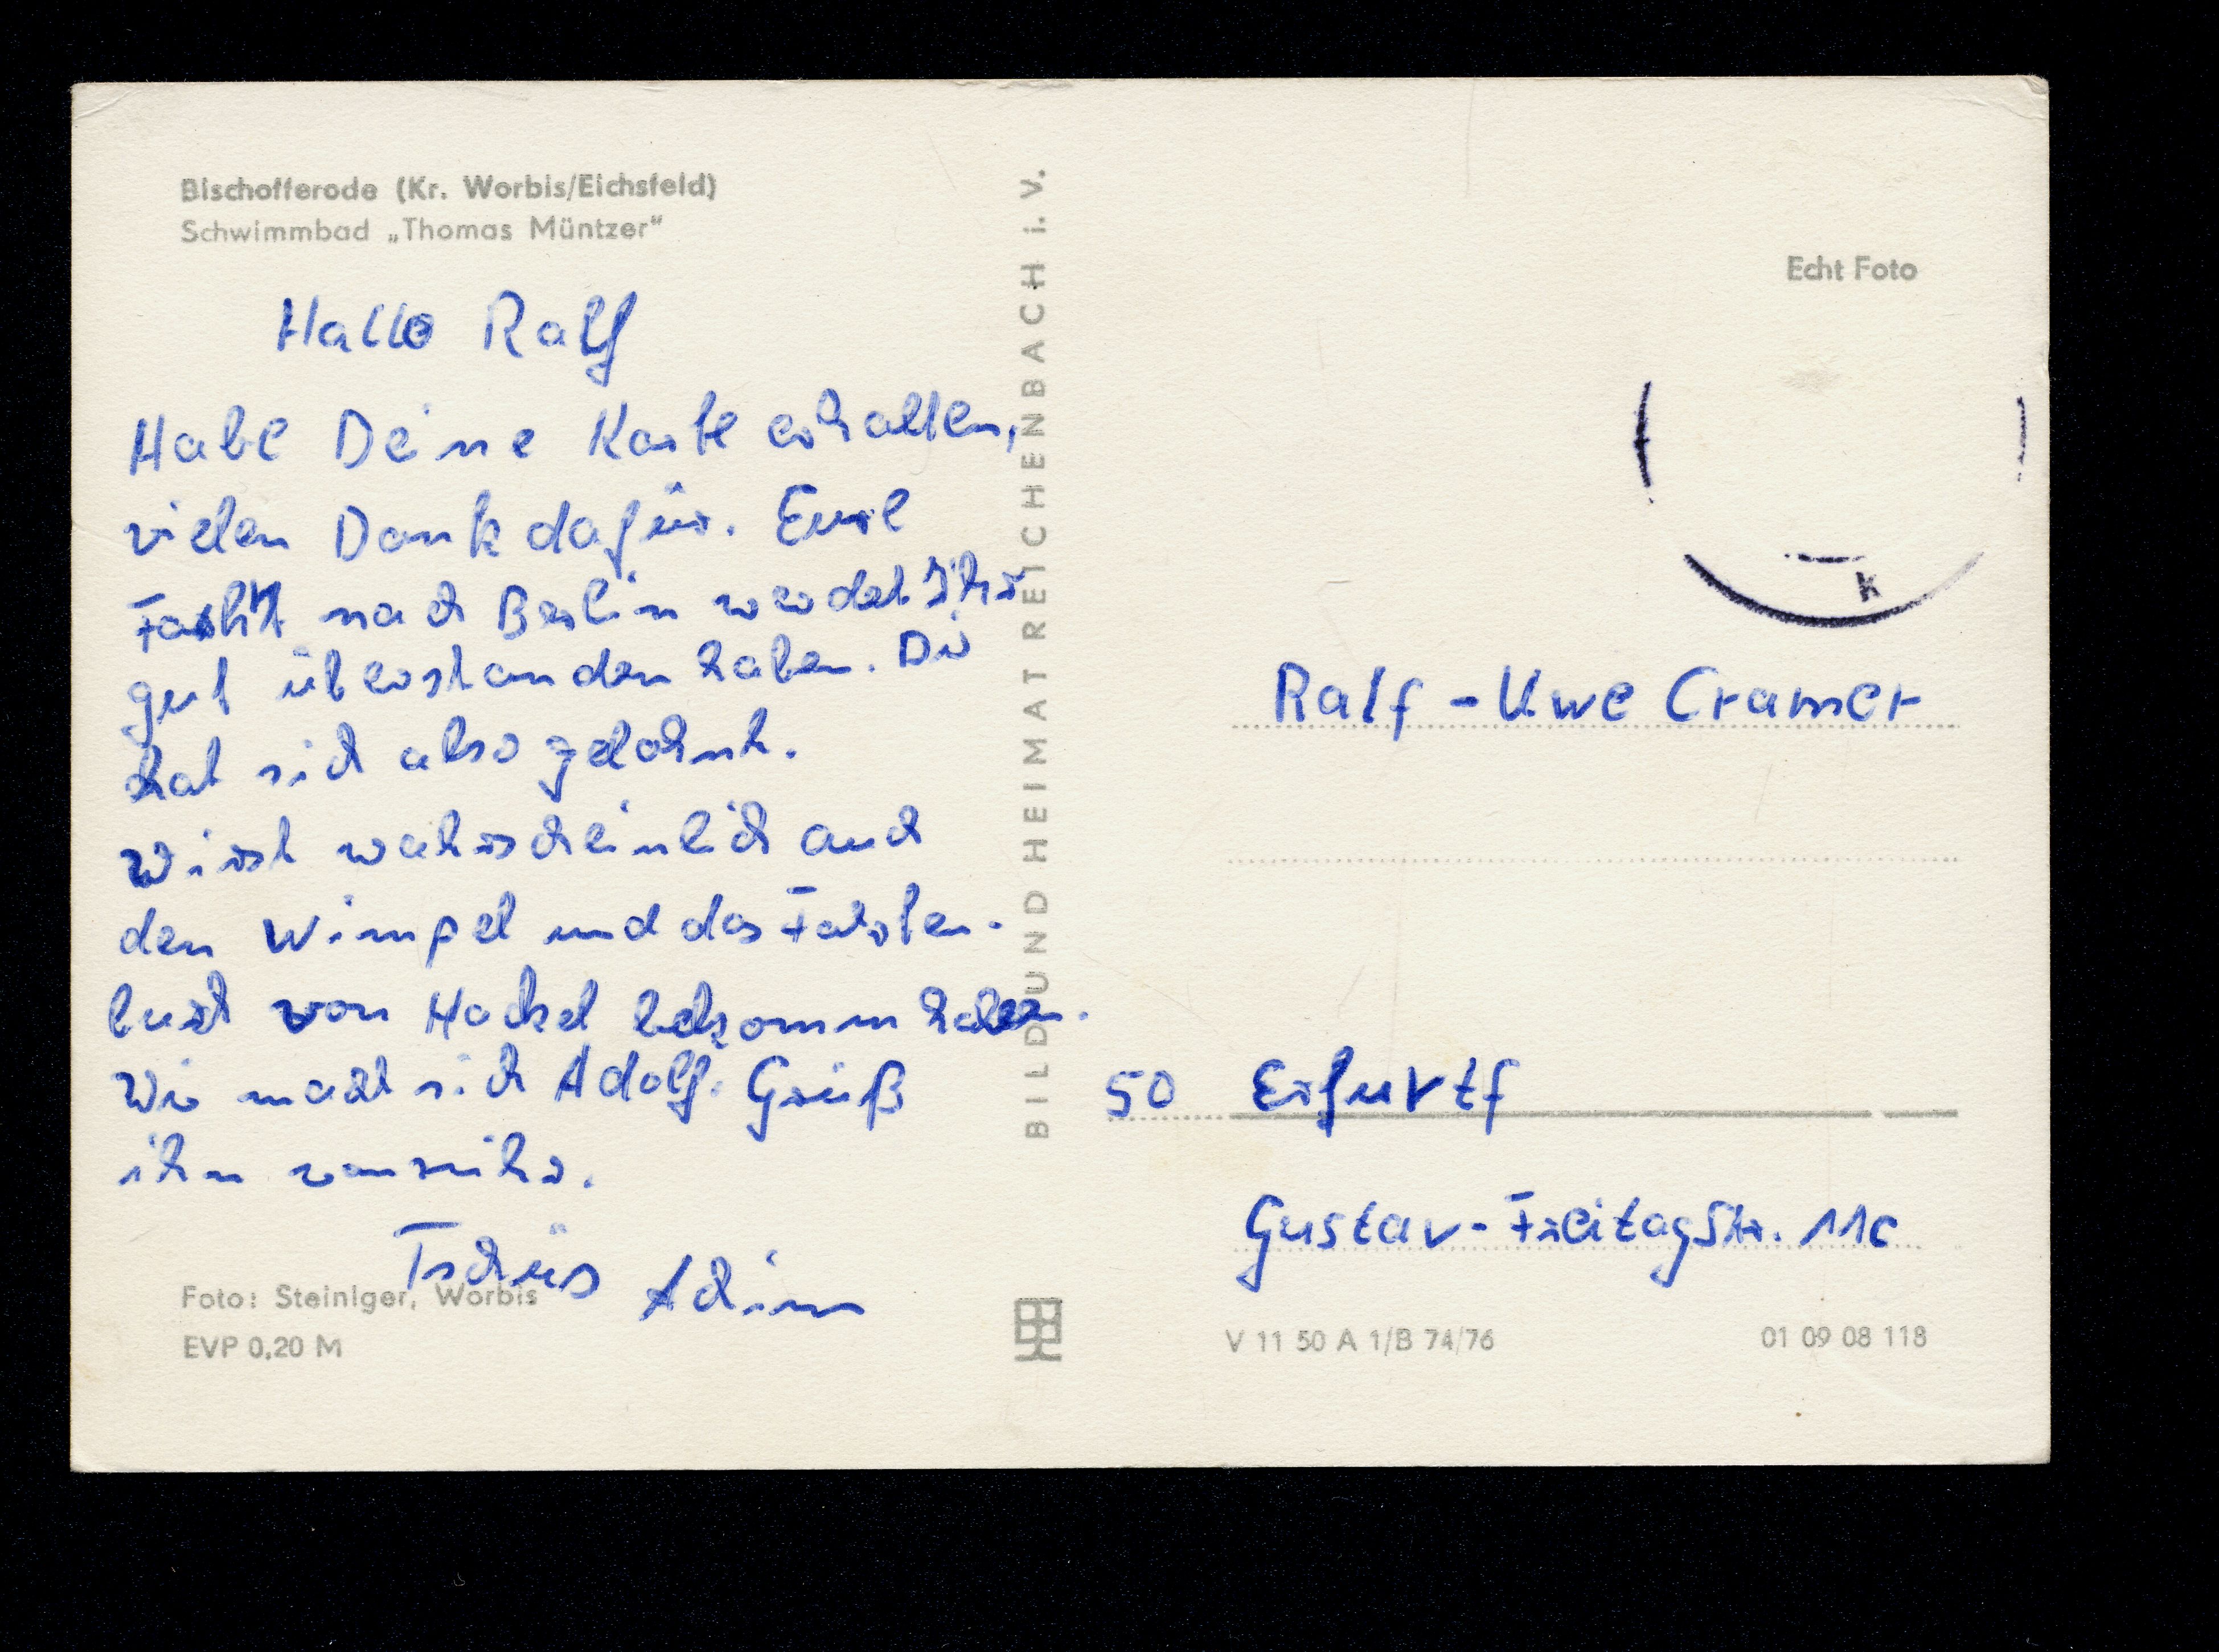 Bischofferode (Kr. Worbis/Eichsfeld)
Schwimmbad „Thomas Müntzer"
Hallo Ralf
Habe Deine Karte erhalten,
vielen Dank dafür. Eure
Fahrt nach Berlin werdet Ihr
gut überstanden haben. Dir
hat sich also gelohnt.
Wirst wahrscheinlich auch
den Wimpel und das Fahrten-
buch von Hackel bekomm haben.
Wie macht sich Adolf. Grüß
ihn von mir.
Tschüs Achim
Foto: Steiniger, Worbis
EVP 0,20 M
BILD UND HEIMAT REICHENBACH i. V.
Echt Foto
k
Ralf-Uwe Cramer
50 Erfurtf
Gustav-FreitagStr. 11c
V 11 50 A 1/B 74/76
01 09 08 118